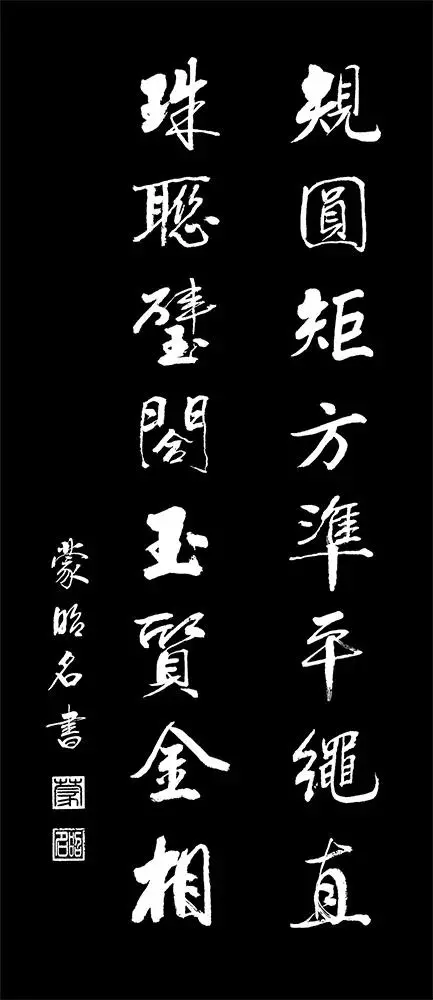 規圓矩方準平繩直
珠聯璧閤玉賢金相
蒙昭名書
蒙
昭名